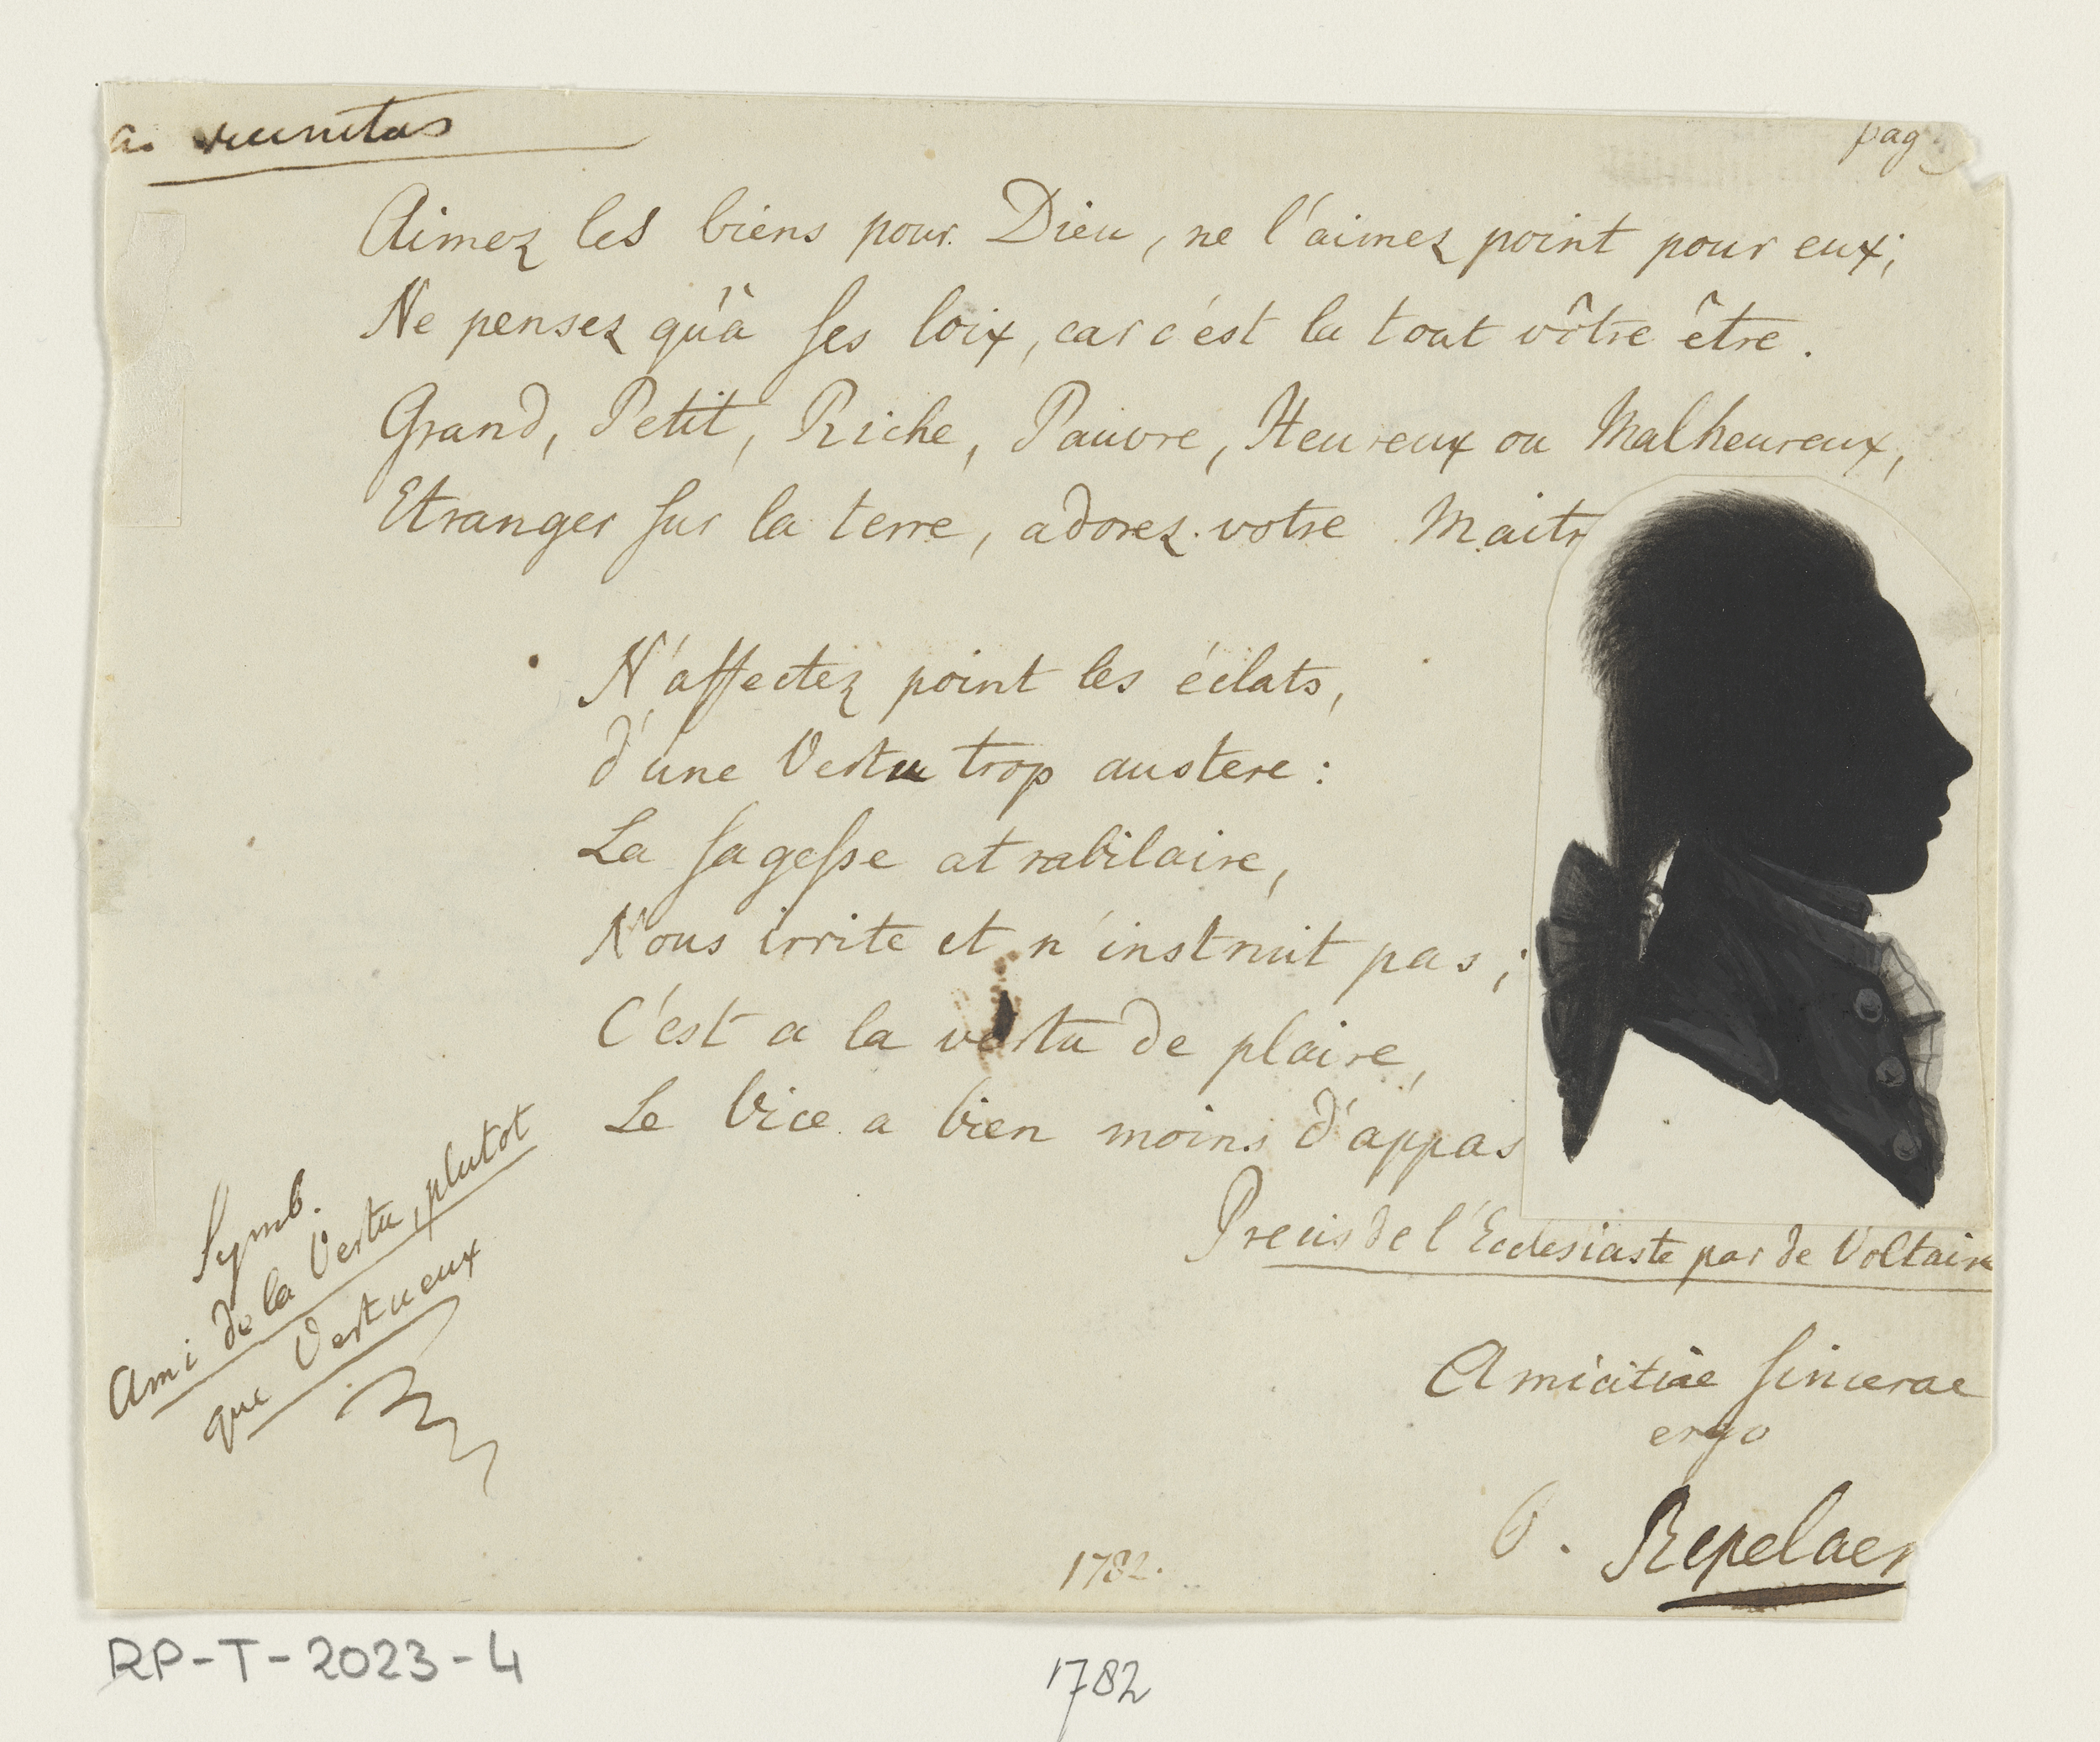 a. veenitas
pag
Aimez les biens pour Dieu, ne l'aimez point pour eux;
Ne pensez qu'à ses loix, car c'est la tout vôtre être.
Grand, Petit, Riche, Pauvre, Heureux ou Malheureux,
Etranger sur la terre, adorez votre Maitr
N'affectez point les éclats,
d'une Vertu trop austere:
La sagesse atrabilaire,
Nous irrite et n'instruit pas;
C'est a la vertu de plaire,
Le Vice a bien moins d'appas
Precis de l'Ecclesiaste par de Voltaire
Symb.
Ami de la Vertu, plutot
que Vertueux
Amicitiae sincerae
ergo
O. Repelaer
1782.
RP-T-2023-4
1782